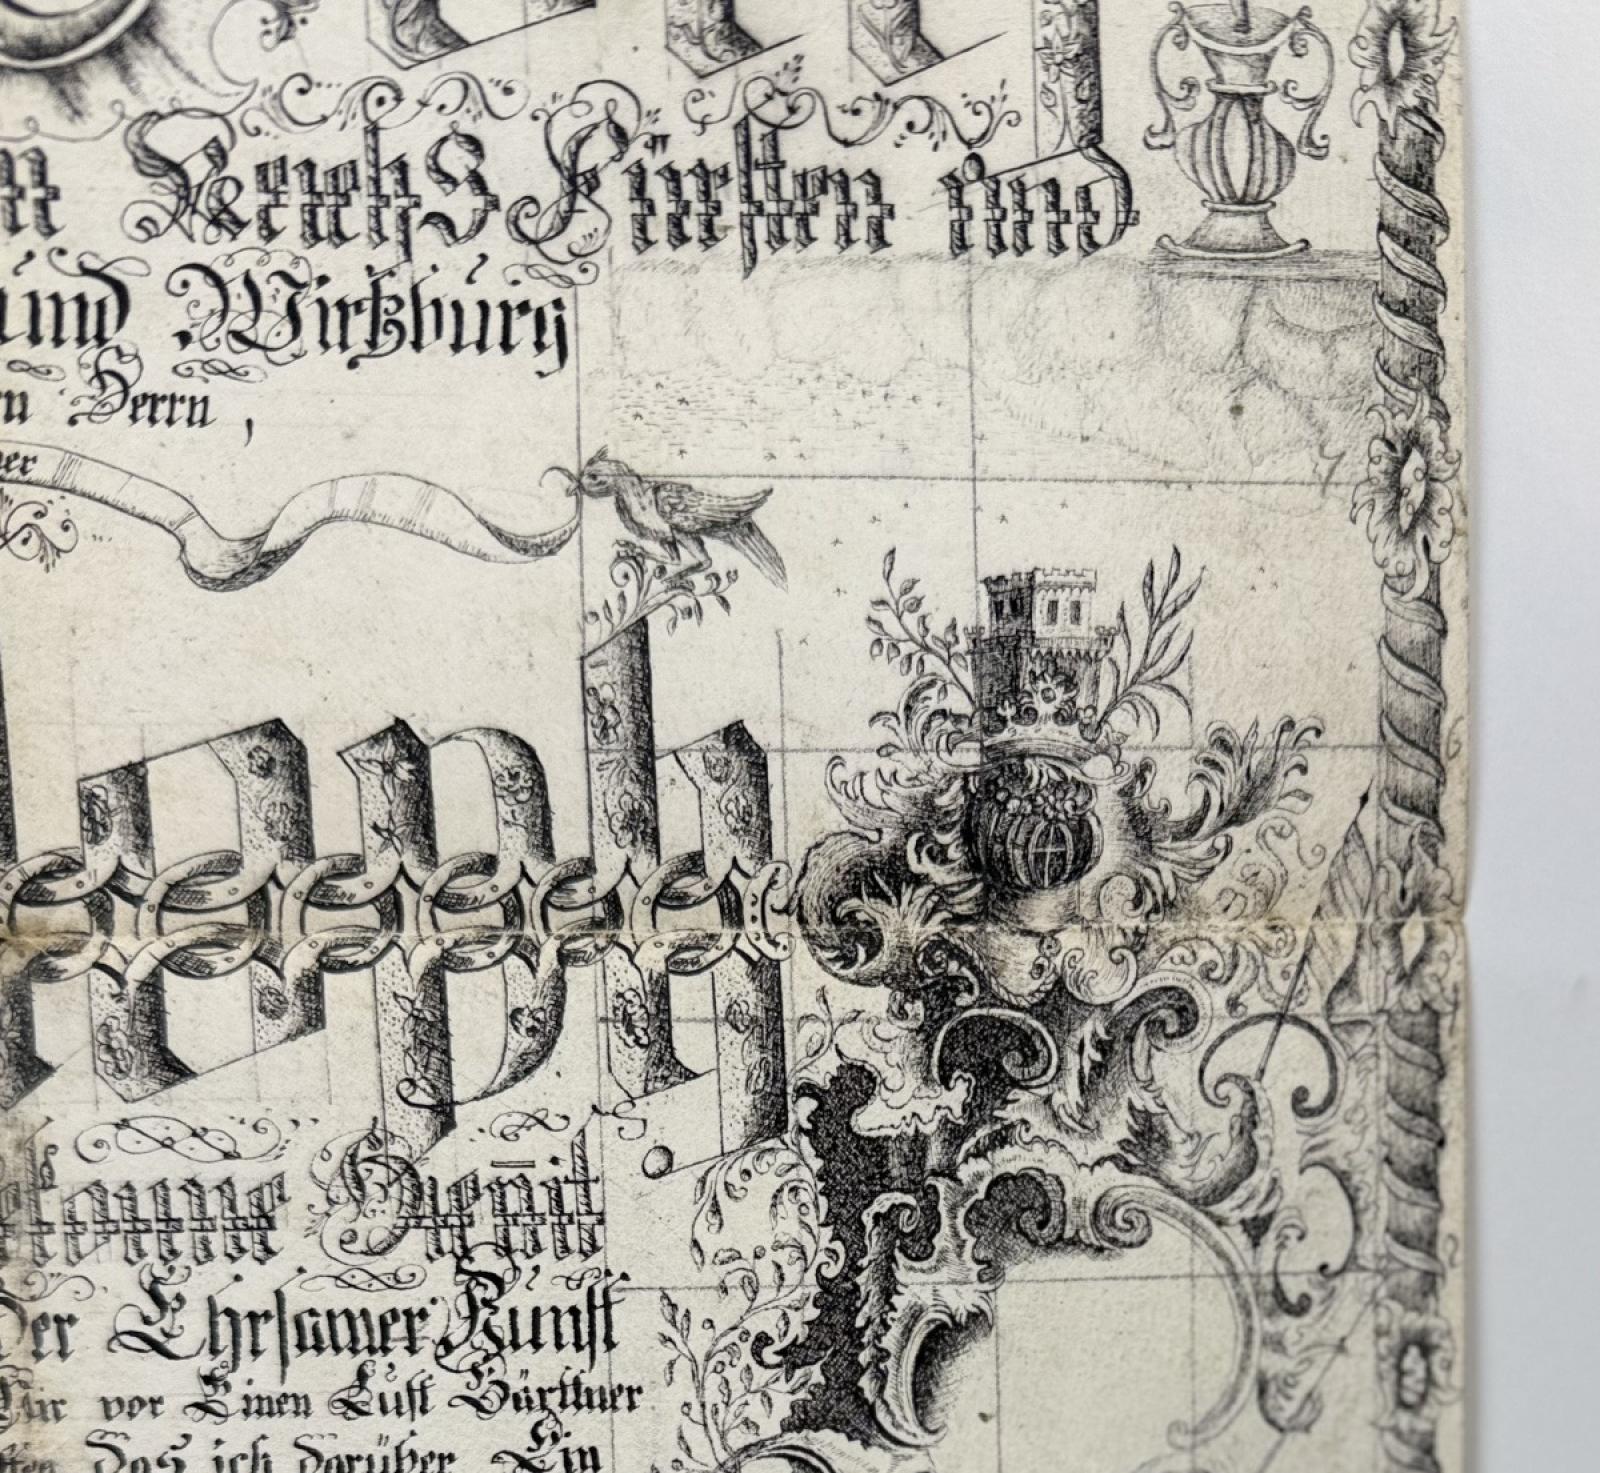 n Reichs Fürsten und
und Wirtzburg
n Herrn,
er
seph
Der Ehrsamer Kunst
Mir vor Einen Lust Gärttner
das ich darüber Ein